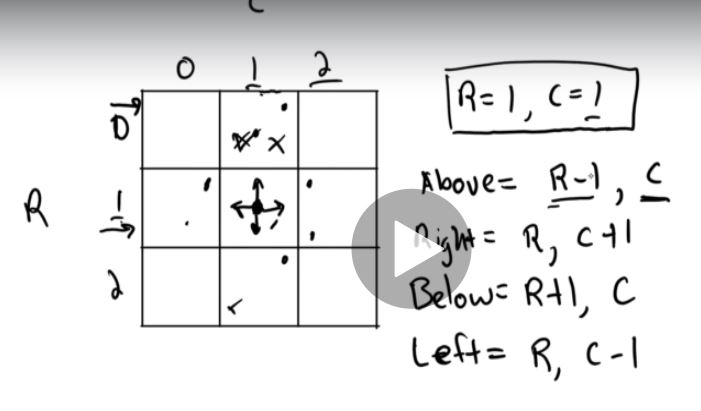 C
0 1 2
0
R = 1, C = 1
R 1
Above = R-1, C
Right = R, C+1
2
Below = R+1, C
Left = R, C-1